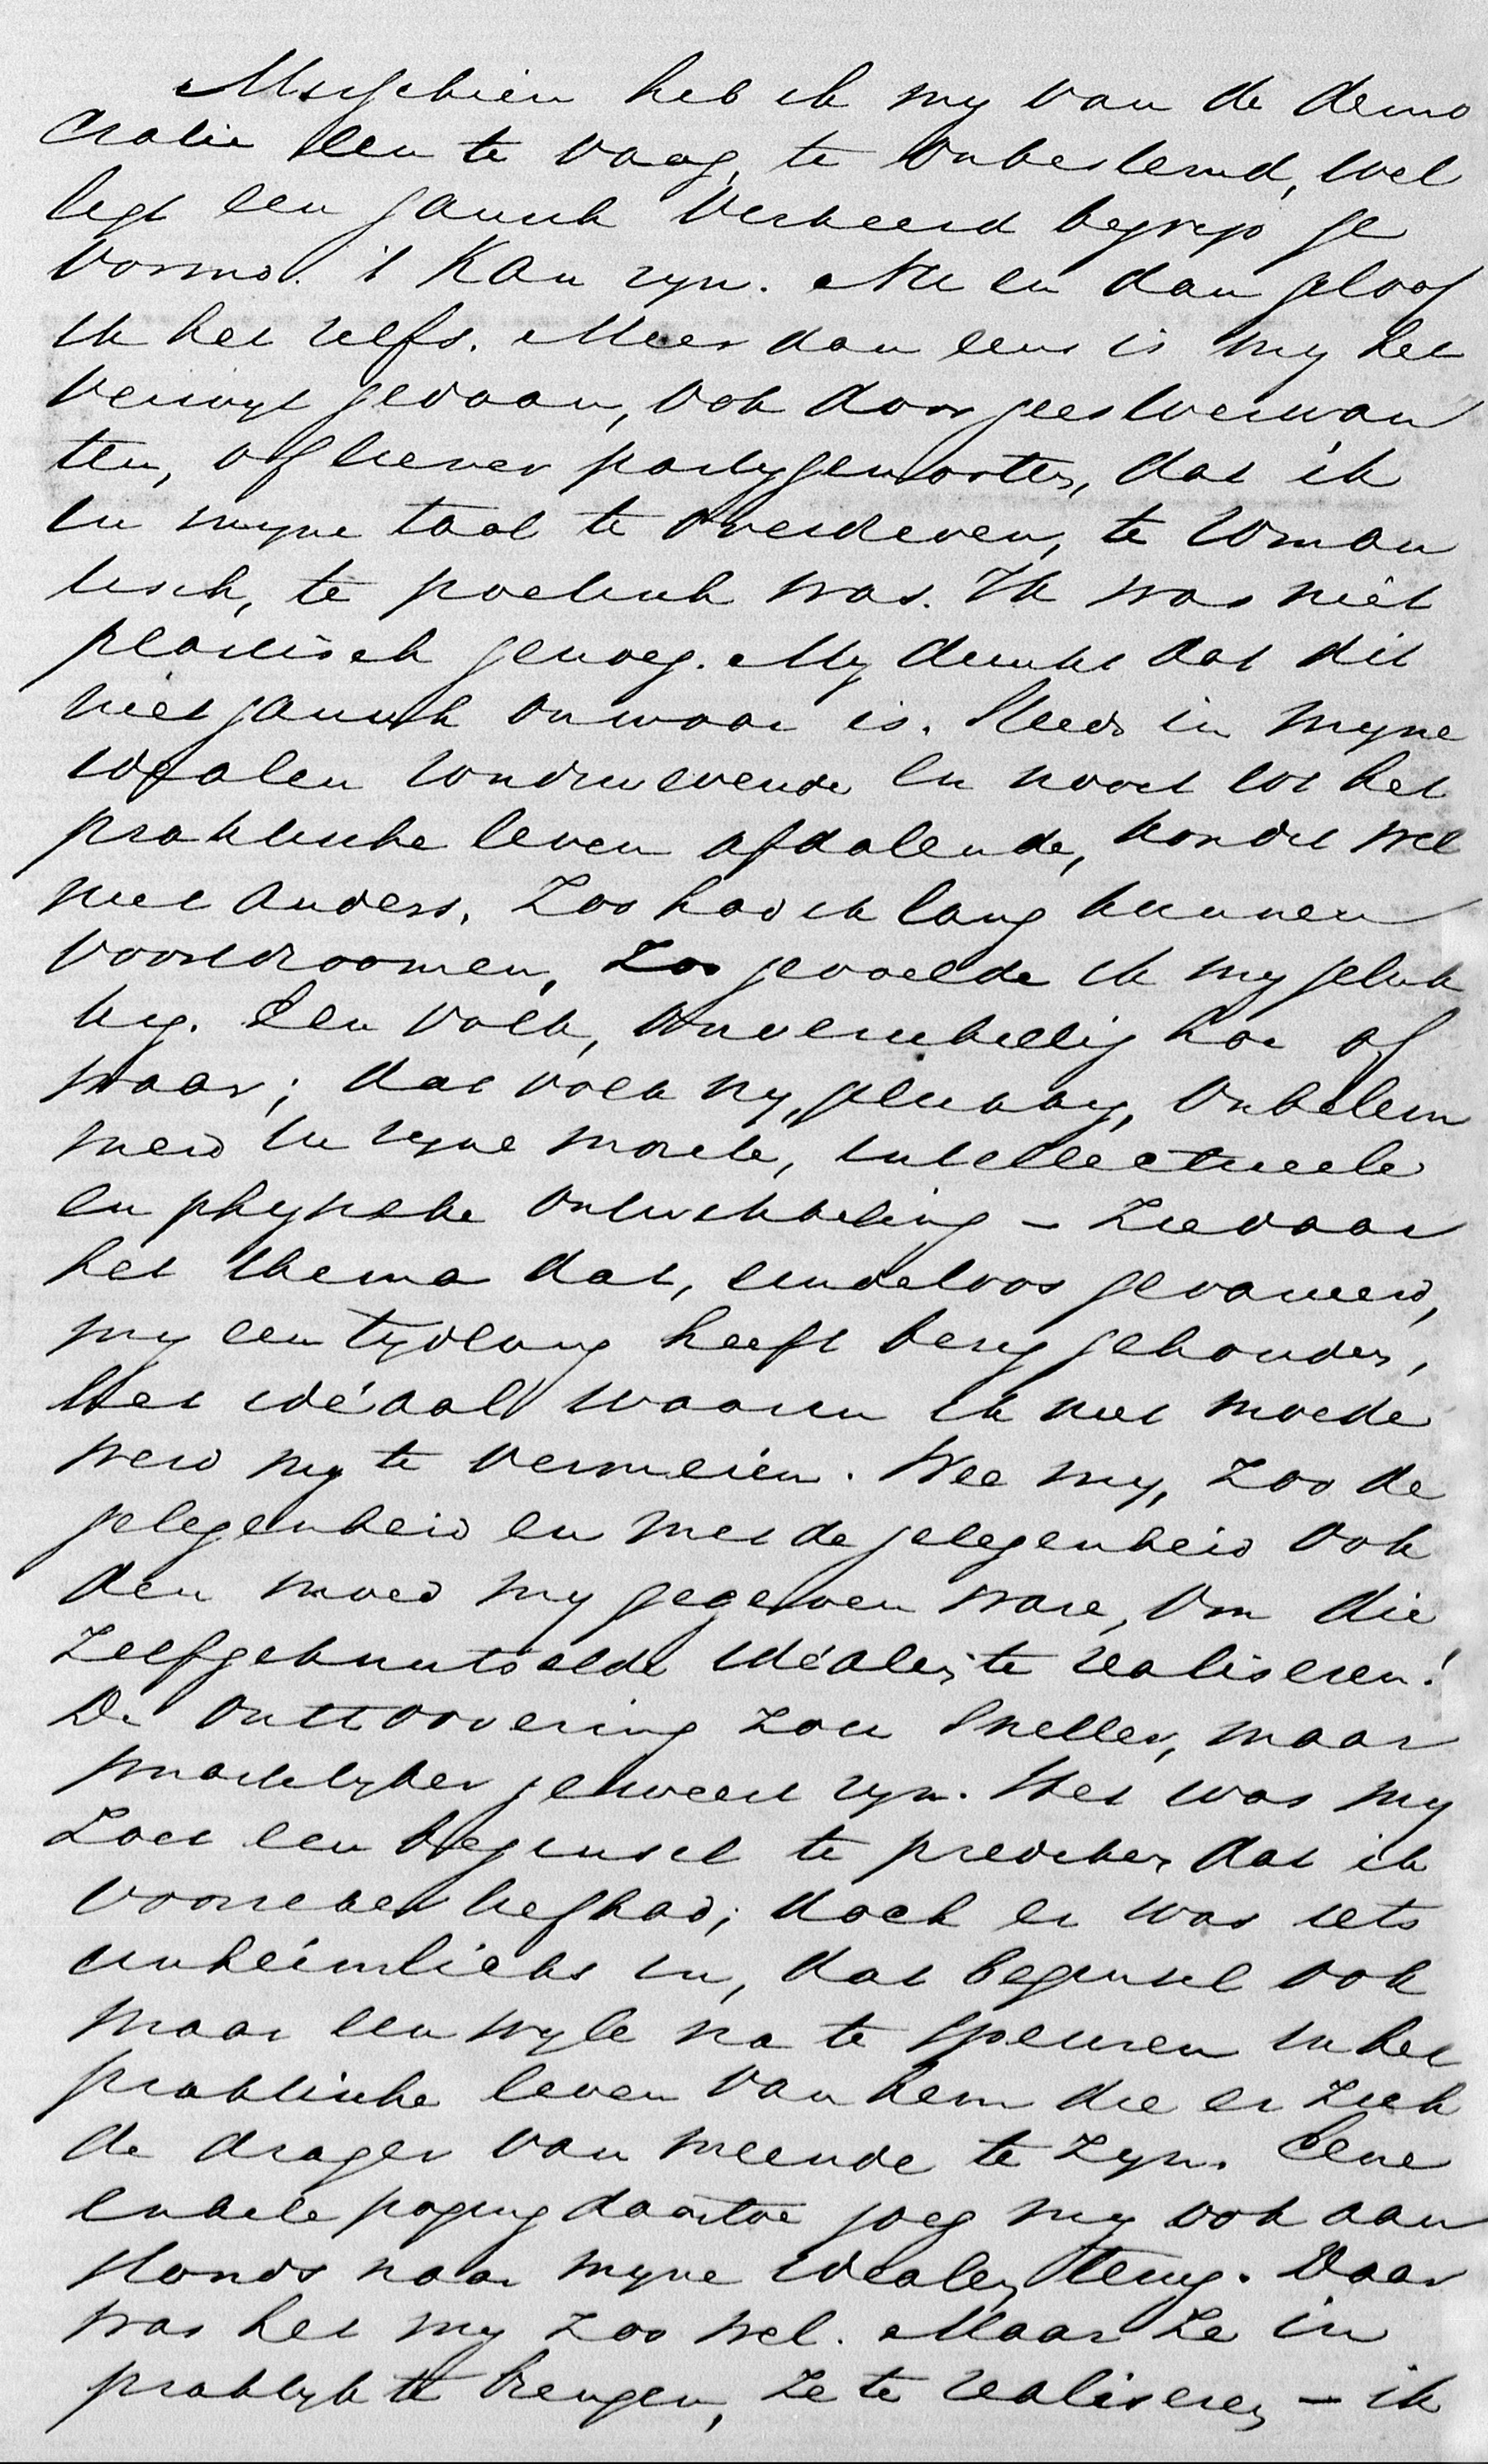 Misschien heb ik my van de demo
cratie een te vaag, te onbestemd, wel
legt een gansch verkeerd begrip ge
vormd. 't Kan zyn. Nu en dan geloof
ik het zelfs. Meer dan eens is my het
verwyt gedaan, ook door geestverwan
ten, of liever partygenooten, dat ik
in myne taal te overdreven, te roman
tisch, te poetisch was. Ik was niet
practisch genoeg. My dunkt dat dit
niet gansch onwaar is. Steeds in myne
idealen rondzwevende en nooit tot het
praktische leven afdalende, kon dit wel
niet anders. Zoo had ik lang kunnen
voortdroomen, zoo gevoelde ik my geluk
kig. Een volk, onverschillig hoe of
waar; dat volk vry, gelukkig, onbelem
merd in zyne moreele, intellectueele
en physieke ontwikkeling – ziedaar
het thema dat, eindeloos gevarieerd,
my een tydlang heeft bezig gehouden,
het idéaal waarin ik niet moede
werd my te vermeien. Wee my, zoo de
gelegenheid en met de gelegenheid ook
den moed my gegeven ware, om die
zelfgeknutselde idéalen te realiseren!
De onttoovering zou sneller, maar
smartelyker geweest zyn. Het was my
zoet een beginsel te prediken dat ik
voorzeker liefhad; doch er was iets
unheimlichs in, dat beginsel ook
maar een wyle na te speuren in het
praktische leven van hem die er zich
de drager van meende te zyn. Eene
enkele poging daartoe joeg my ook aan
stonds naar myne idealen terug. Daar
was het my zoo wel. Maar ze in
praktyk te brengen, ze te realiseren – ik